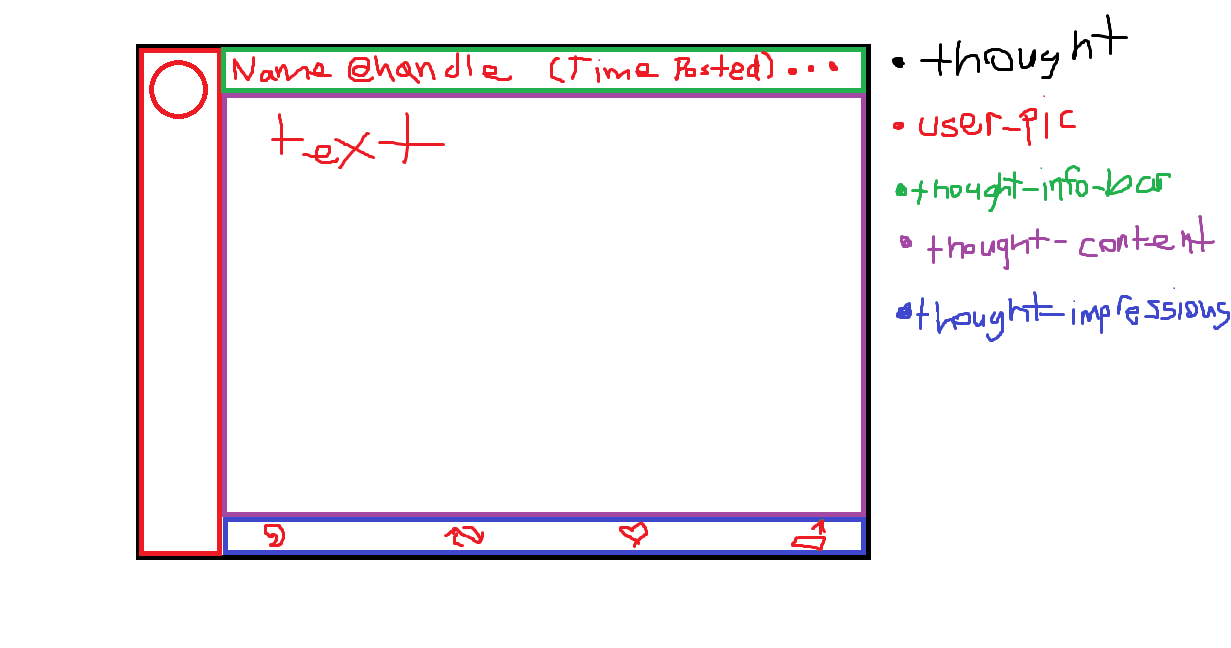 Name @handle (Time Posted) ...
text
• thought
• user-pic
• thought-info-bar
• thought-content
• thought-impressions